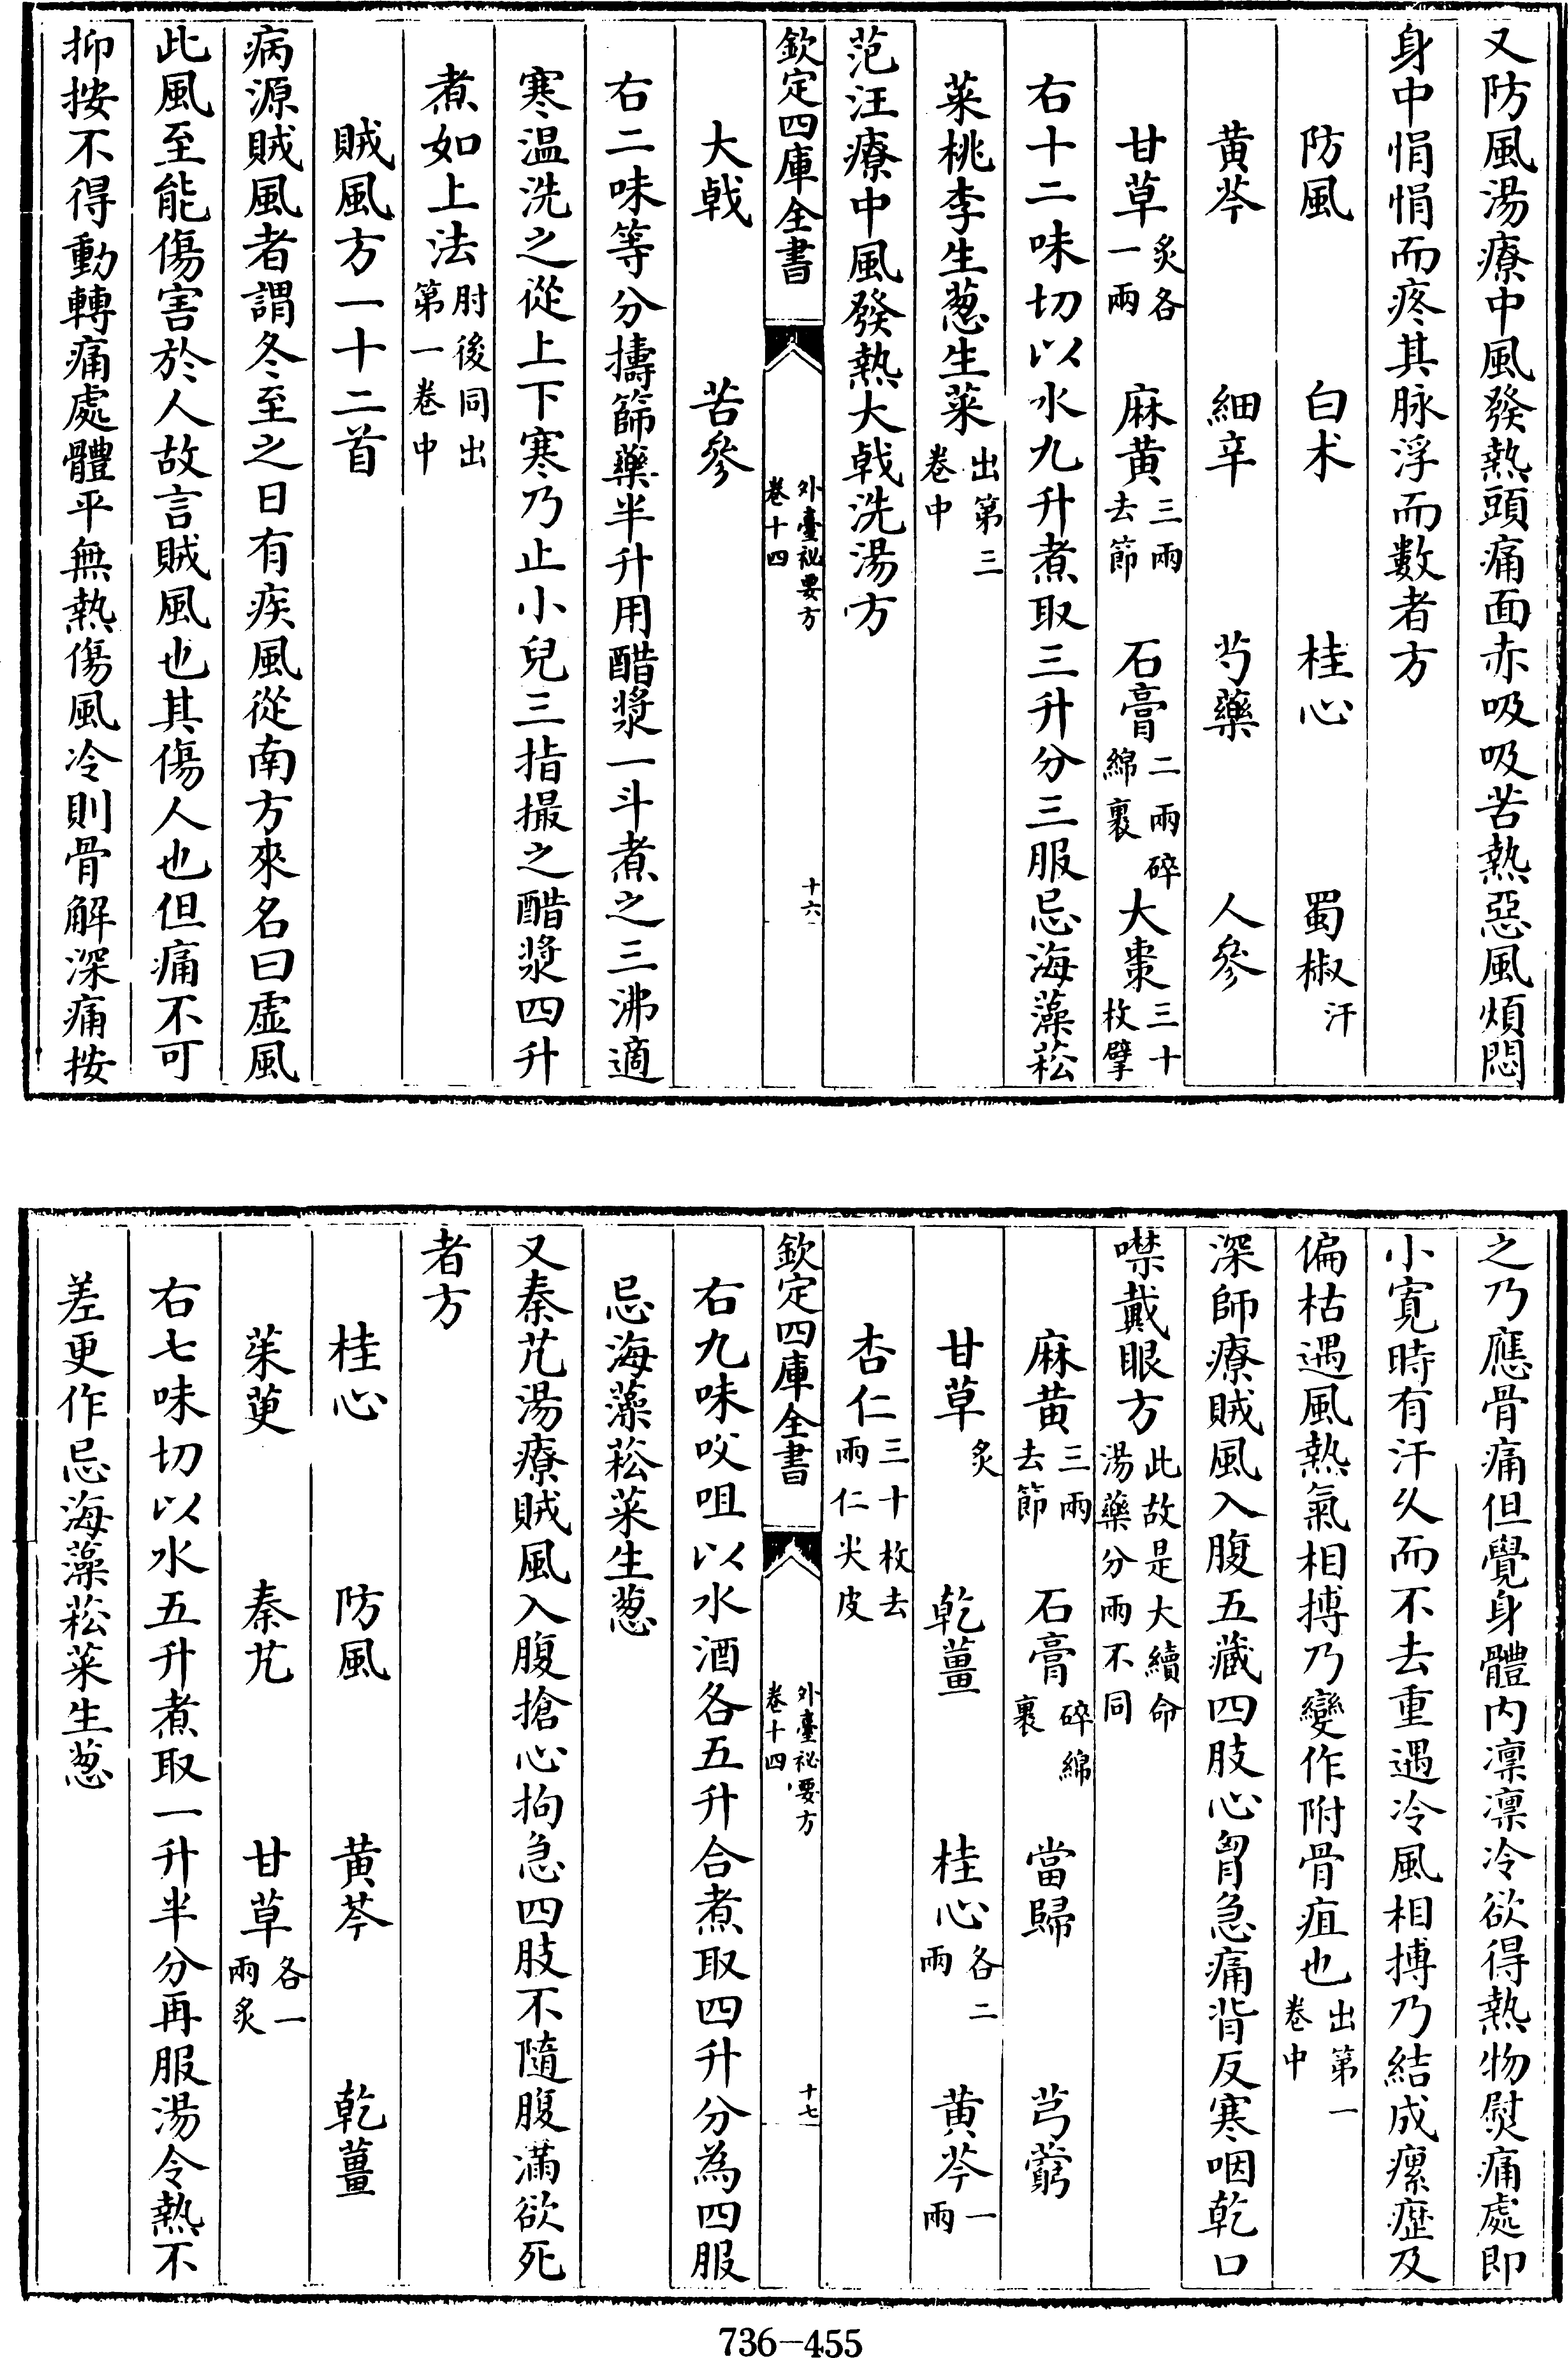 又防風湯療中風發熱頭痛面赤吸吸苦熱惡風煩悶
身中悁悁而疼其脉浮而數者方
防風　白朮　桂心　蜀椒汗
黄芩　細辛　芍藥　人參
甘草炙各一兩　麻黄三兩去節　石膏二兩碎綿裹　大棗三十枚擘
右十二味切以水九升煮取三升分三服忌海藻菘
菜桃李生葱生菜出第三卷中
范汪療中風發熱大戟洗湯方
欽定四庫全書　外臺祕要方卷十四　十六
大戟　苦參
右二味等分擣篩藥半升用醋漿一斗煮之三沸適
寒温洗之從上下寒乃止小兒三指撮之醋漿四升
煮如上法肘後同出第一卷中
賊風方一十二首
病源賊風者謂冬至之日有疾風從南方來名曰虛風
此風至能傷害於人故言賊風也其傷人也但痛不可
抑按不得動轉痛處體平無熱傷風冷則骨解深痛按
之乃應骨痛但覺身體内凛凛冷欲得熱物熨痛處即
小寛時有汗乆而不去重遇冷風相搏乃結成瘰癧及
偏枯遇風熱氣相搏乃變作附骨疽也出第一卷中
深師療賊風入腹五藏四肢心胷急痛背反寒咽乾口
噤戴眼方此故是大續命湯藥分兩不同
麻黄三兩去節　石膏碎綿裹　當歸　芎藭
甘草炙　乾薑　桂心各二兩　黄芩一兩
杏仁三十枚去兩仁尖皮
欽定四庫全書　外臺祕要方卷十四　十七
右九味㕮咀以水酒各五升合煮取四升分為四服
忌海藻菘菜生葱
又秦艽湯療賊風入腹搶心拘急四肢不隨腹滿欲死
者方
桂心　防風　黄芩　乾薑
茱萸　秦艽　甘草各一兩炙
右七味切以水五升煮取一升半分再服湯令熱不
差更作忌海藻菘菜生葱
736-455